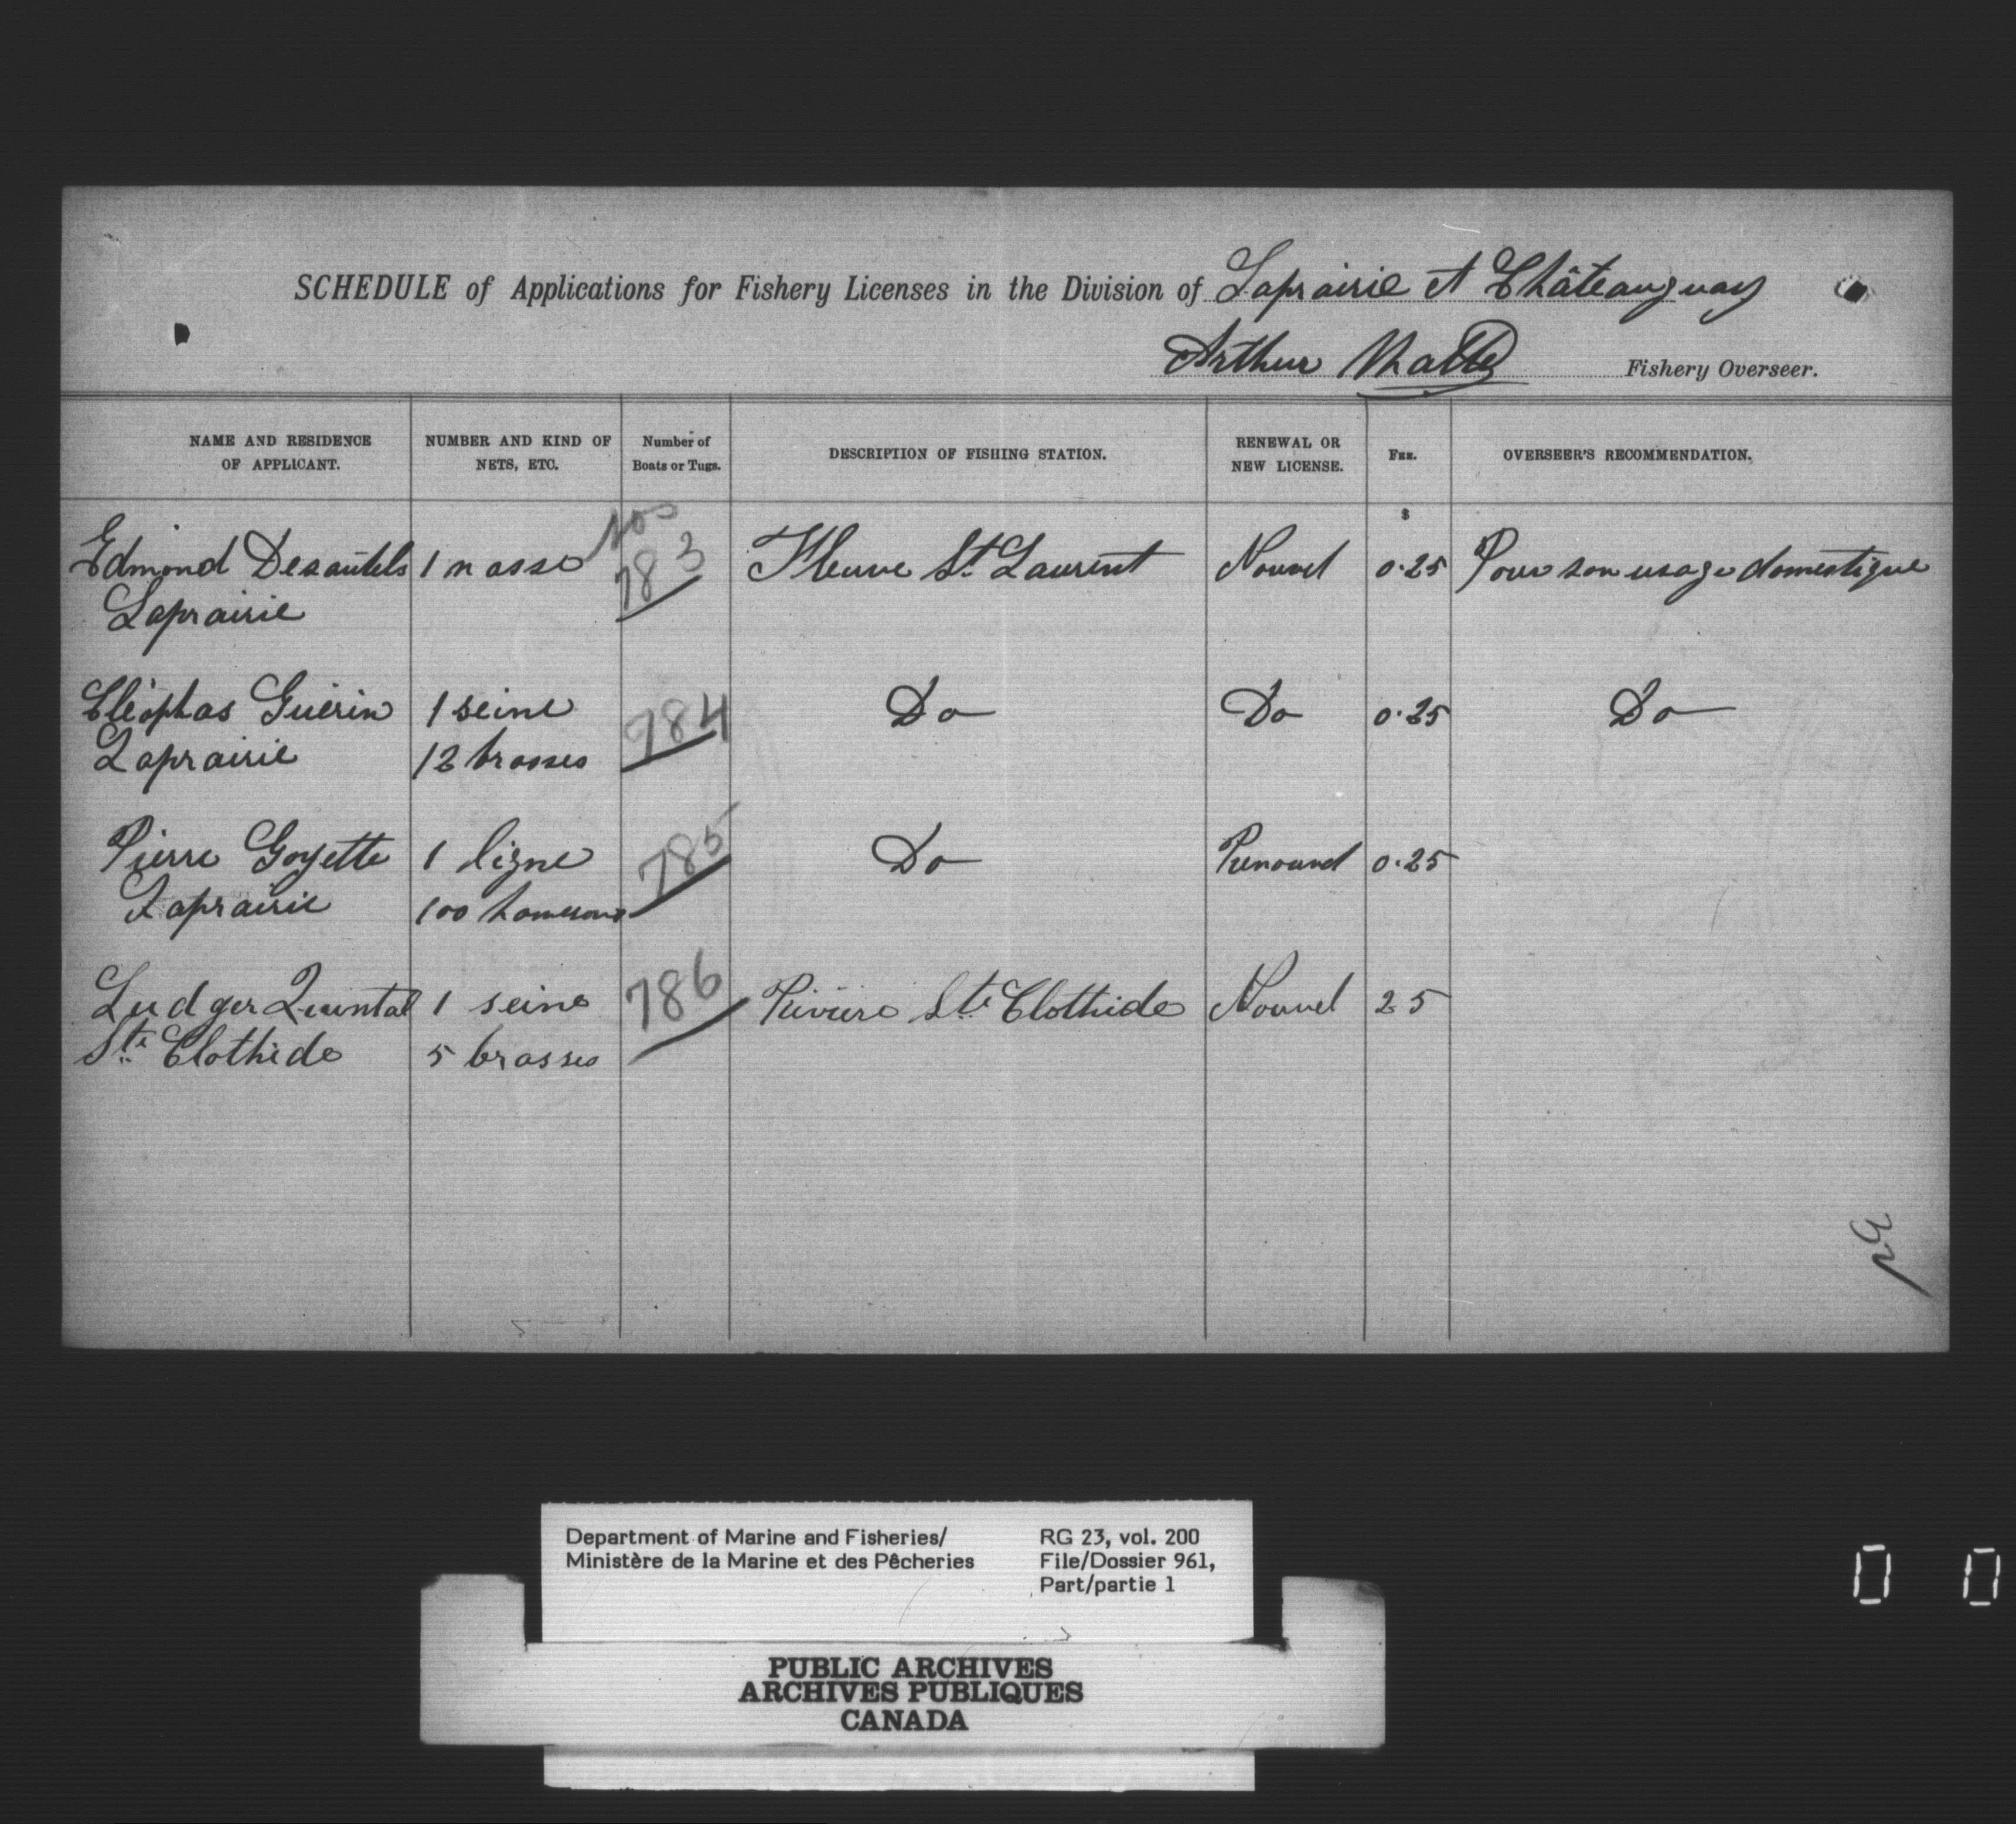 SCHEDULE of Applications for Fishery Licenses in the Division of Laprairie et Châteauguay
Arthur Fishery Overseer.
NAME AND RESIDENCE OF APPLICANT. NUMBER AND KIND OF NETS, ETC. Number of Boats or Tugs. DESCRIPTION OF FISHING STATION. RENEWAL OR NEW LICENSE. FEE. OVERSEER'S RECOMMENDATION.
Nos $
Edmond Desautels 1 nasse 783 Fleuve St. Laurent Nouvel 0.25 Pour son usage domestique
Laprairie
Cléophas Guérin 1 seine 784 Do Do 0.25 Do
Laprairie 12 brasses
Pierre Goyette 1 ligne 785 Do Renouvel 0.25
Laprairie 100 hamecons
Ludger Quintal 1 seine 786 Riviere Ste Clothide Nouvel 25
Ste Clothide 5 brasses
Department of Marine and Fisheries/ RG 23, vol. 200
Ministère de la Marine et des Pêcheries File/Dossier 961,
Part/partie 1
PUBLIC ARCHIVES
ARCHIVES PUBLIQUES
CANADA
0 0